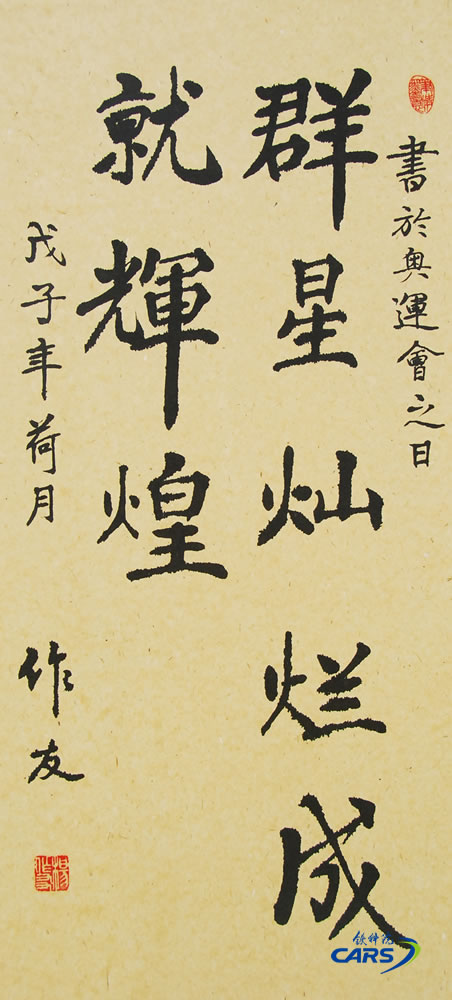 書於奥運會之日
群星灿烂成
就輝煌
戊子年荷月
作友
铁科院
CARS